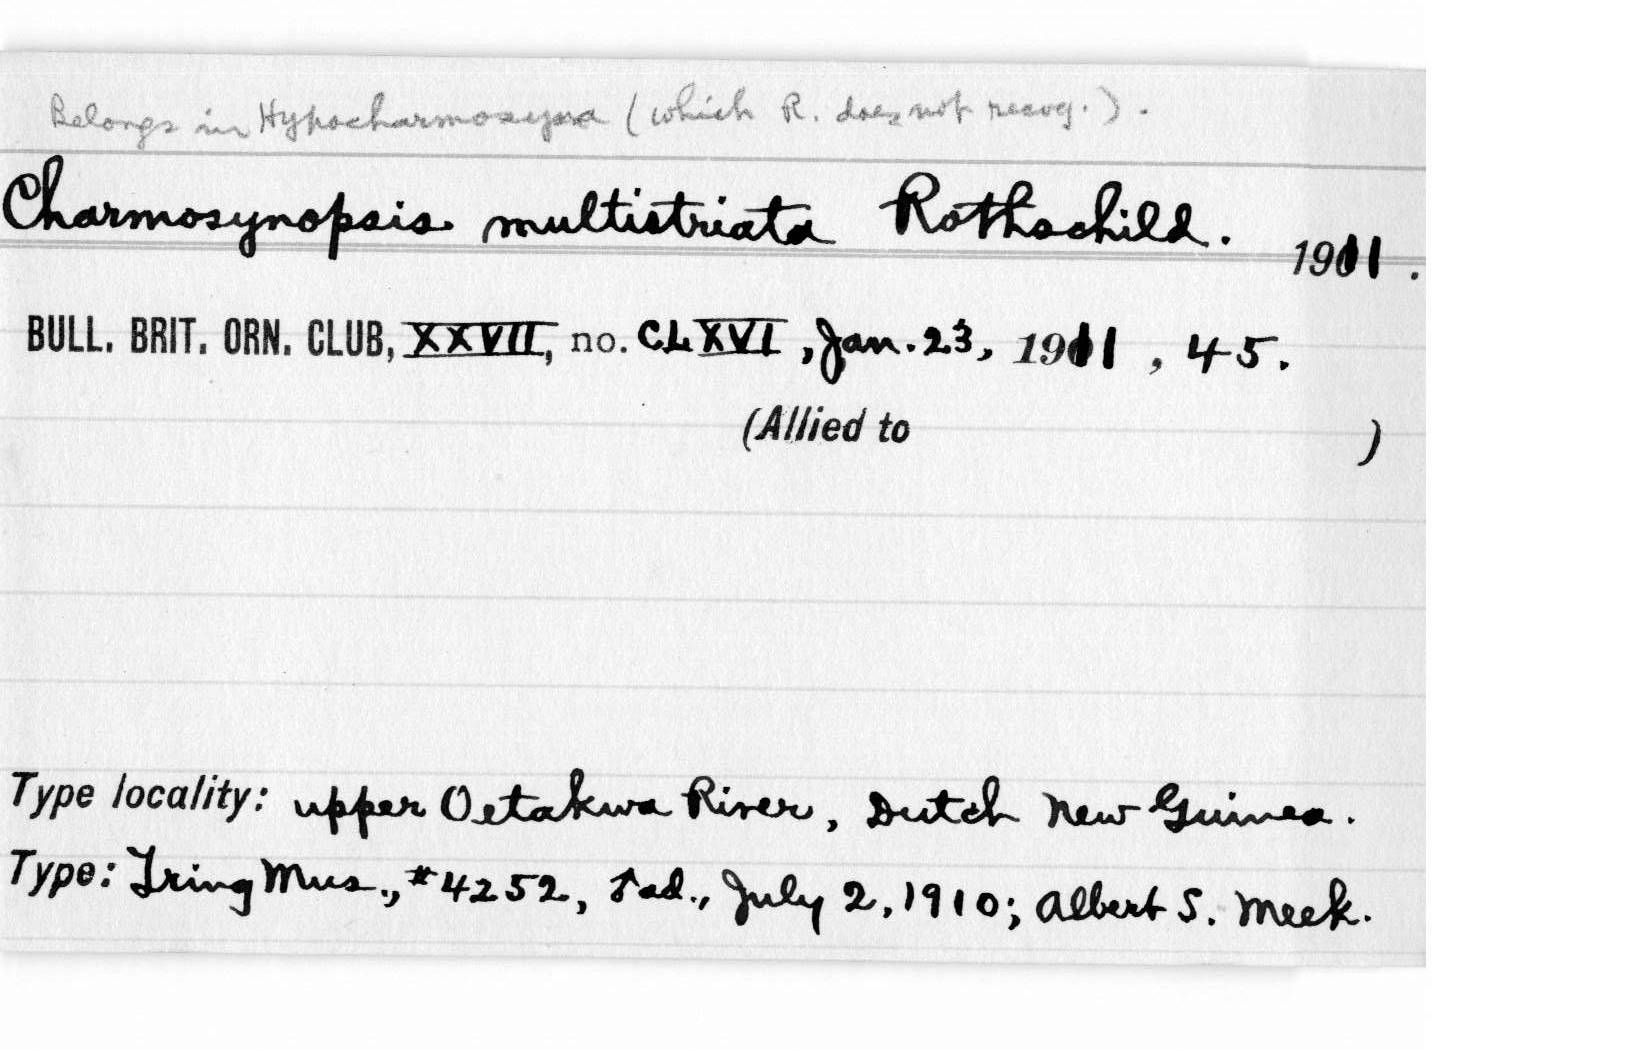 Belongs in Hypocharmosyna (which R. does not recog.).
Charmosynopsis multistriata Rothschild. 1911.
BULL. BRIT. ORN. CLUB, XXVII, no. CLXVI, Jan. 23, 1911, 45.
(Allied to )
Type locality: upper Oetakwa River, Dutch New Guinea.
Type: Tring Mus., #4252, ♂ ad., July 2, 1910; Albert S. Meek.